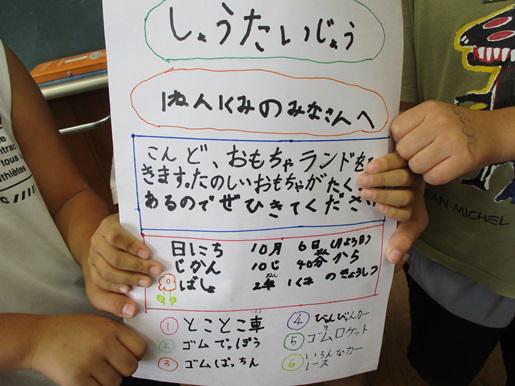 しょうたいじょう
1ねん1くみのみなさんへ
こんど、おもちゃランドを
きます。たのしいおもちゃがたく
あるのでぜひきてくださ
日にち 10月 6日
じかん 10じ 40分から
ばしょ 2年 1くみ のきょうしつ
① とことこ車
② ゴムでっぽう
③ ゴムぱっちん
④ びゅんびゅんカー
⑤ ゴムロケット
⑥ いろんなカー
レース
AN-MICHEL
tous
athlètes